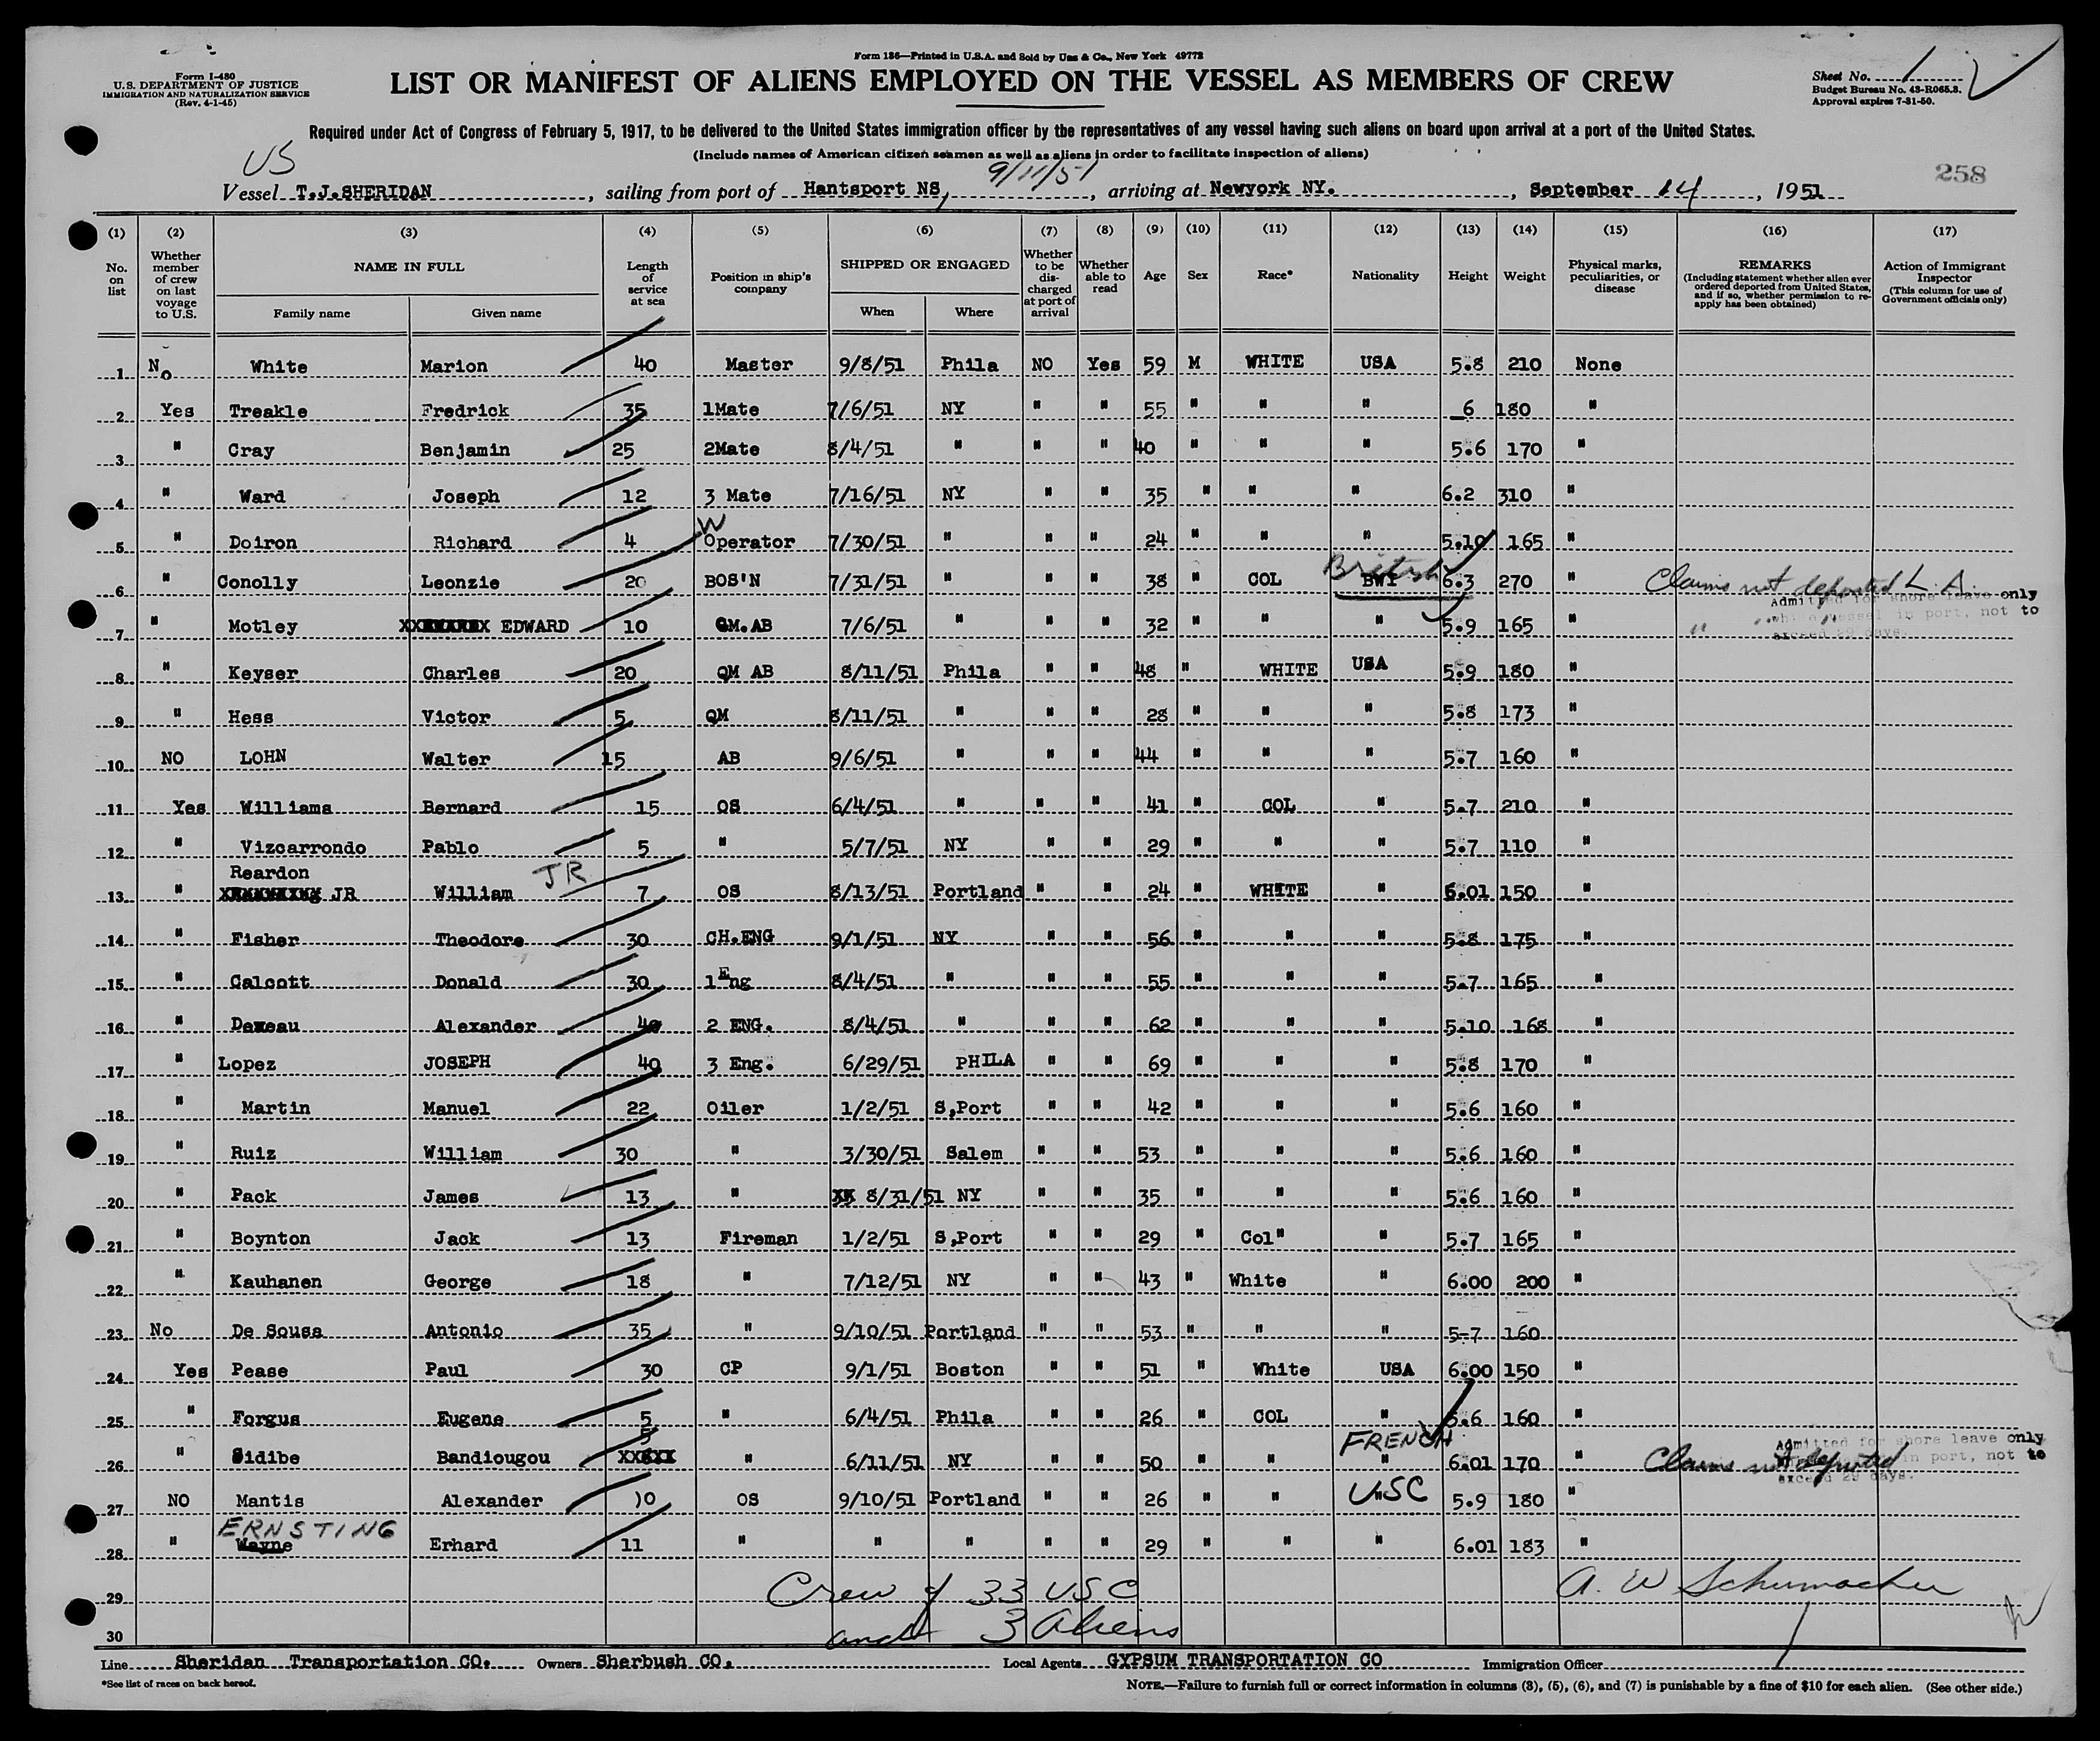 Form 136—Printed in U.S.A. and Sold by Unz & Co., New York 49772
Form I-480
U.S. DEPARTMENT OF JUSTICE
IMMIGRATION AND NATURALIZATION SERVICE
(Rev. 4-1-45)
LIST OR MANIFEST OF ALIENS EMPLOYED ON THE VESSEL AS MEMBERS OF CREW
Sheet No. 1
Budget Bureau No. 43-R065.3.
Approval expires 7-31-50.
Required under Act of Congress of February 5, 1917, to be delivered to the United States immigration officer by the representatives of any vessel having such aliens on board upon arrival at a port of the United States.
(Include names of American citizen seamen as well as aliens in order to facilitate inspection of aliens)
US 9/11/51 258
Vessel T.J.SHERIDAN, sailing from port of Hantsport NS, arriving at Newyork NY., September 14, 1951
(1) (2) (3) (4) (5) (6) (7) (8) (9) (10) (11) (12) (13) (14) (15) (16) (17)
No. on list
Whether member of crew on last voyage to U.S.
NAME IN FULL
Family name Given name
Length of service at sea
Position in ship's company
SHIPPED OR ENGAGED
When Where
Whether to be discharged at port of arrival
Whether able to read
Age Sex Race* Nationality Height Weight
Physical marks, peculiarities, or disease
REMARKS
(Including statement whether alien ever ordered deported from United States, and if so, whether permission to reapply has been obtained)
Action of Immigrant Inspector
(This column for use of Government officials only)
1 No White Marion 40 Master 9/8/51 Phila NO Yes 59 M WHITE USA 5.8 210 None
2 Yes Treakle Fredrick 35 1Mate 7/6/51 NY " " 55 " " " 6 180 "
3 " Cray Benjamin 25 2Mate 8/4/51 " " " 40 " " " 5.6 170 "
4 " Ward Joseph 12 3 Mate 7/16/51 NY " " 35 " " " 6.2 310 "
5 " Doiron Richard 4 W Operator 7/30/51 " " " 24 " " " 5.10 165 "
6 " Conolly Leonzie 20 BOS'N 7/31/51 " " " 38 " COL BWI British 6.3 270 " Claims not deported L.A.
Admitted for shore leave only while vessel in port, not to exceed 29 days.
7 " Motley EDWARD 10 QM.AB 7/6/51 " " " 32 " " " 5.9 165 " " " "
8 " Keyser Charles 20 QM AB 8/11/51 Phila " " 48 " WHITE USA 5.9 180 "
9 " Hess Victor 5 QM 8/11/51 " " " 28 " " " 5.8 173 "
10 NO LOHN Walter 15 AB 9/6/51 " " " 44 " " " 5.7 160 "
11 Yes Williams Bernard 15 OS 6/4/51 " " " 41 " COL " 5.7 210 "
12 " Vizcarrondo Pablo 5 " 5/7/51 NY " " 29 " " " 5.7 110 "
13 " Reardon JR William JR 7 OS 8/13/51 Portland " " 24 " WHITE " 6.01 150 "
14 " Fisher Theodore 30 CH.ENG 9/1/51 NY " " 56 " " " 5.8 175 "
15 " Calcott Donald 30 1Eng 8/4/51 " " " 55 " " " 5.7 165 "
16 " Alexander 40 2 ENG. 8/4/51 " " " 62 " " " 5.10 168 "
17 " Lopez JOSEPH 40 3 Eng. 6/29/51 PHILA " " 69 " " " 5.8 170 "
18 " Martin Manuel 22 Oiler 1/2/51 S,Port " " 42 " " " 5.6 160 "
19 " Ruiz William 30 " 3/30/51 Salem " " 53 " " " 5.6 160 "
20 " Pack James 13 " XX 8/31/51 NY " " 35 " " " 5.6 160 "
21 " Boynton Jack 13 Fireman 1/2/51 S,Port " " 29 " Col" " 5.7 165 "
22 " Kauhanen George 18 " 7/12/51 NY " " 43 " White " 6.00 200 "
23 No De Sousa Antonio 35 " 9/10/51 Portland " " 53 " " " 5-7 160
24 Yes Pease Paul 30 CP 9/1/51 Boston " " 51 " White USA 6.00 150 "
25 " Forgus Eugene 5 " 6/4/51 Phila " " 26 " COL " 5.6 160 "
26 " Sidibe Bandiougou 5 " 6/11/51 NY " " 50 " " FRENCH " 6.01 170 " Claims not deported
Admitted for shore leave only in port, not to exceed 29 days.
27 NO Mantis Alexander 10 OS 9/10/51 Portland " " 26 " " USC 5.9 180 "
28 " ERNSTING Wayne Erhard 11 " " " " " 29 " " " 6.01 183 "
29 Crew of 33 USC A. W Schumacher
30 and 3 Aliens
Line Sheridan Transportation CO. Owners Sherbush CO. Local Agents GYPSUM TRANSPORTATION CO Immigration Officer
*See list of races on back hereof.
NOTE.—Failure to furnish full or correct information in columns (3), (5), (6), and (7) is punishable by a fine of $10 for each alien. (See other side.)